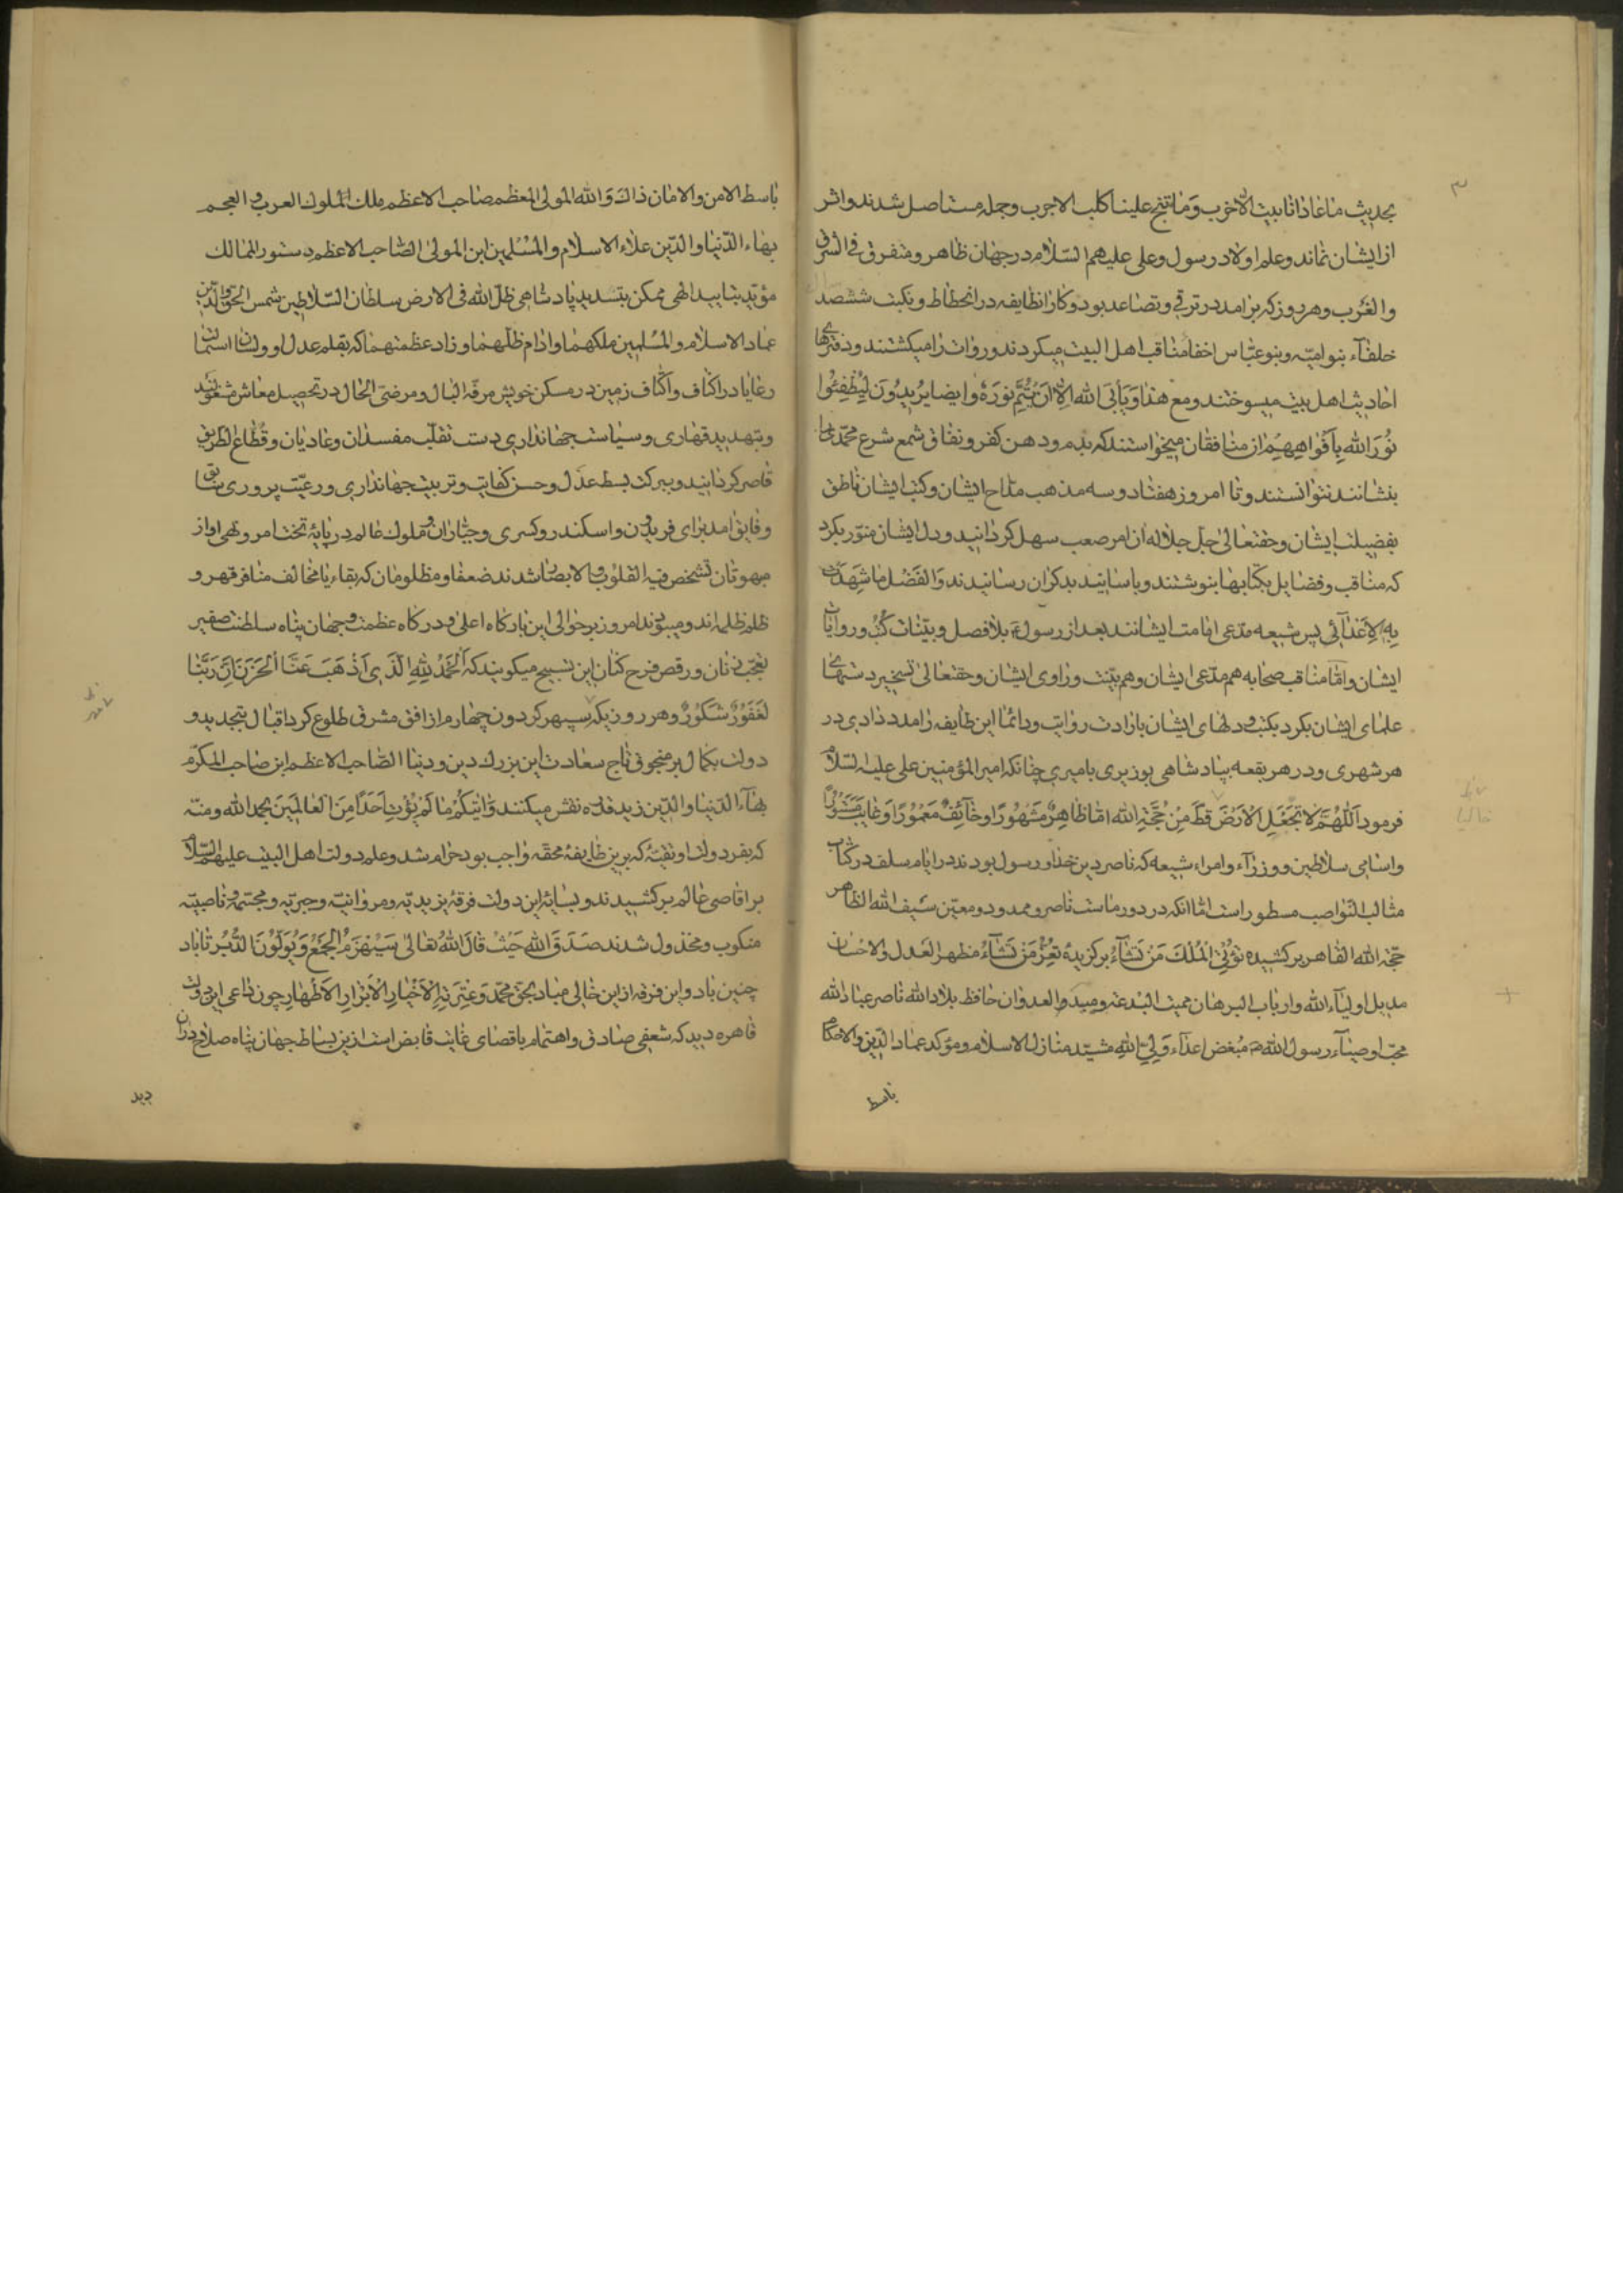 ۳
بحدیث ما عادانا بیت الا خرب وما نبح علینا کلب الا جرب وجمله مستاصل شدند و اثر
از ایشان نماند و علم اولاد رسول و علی علیهم السلام در جهان ظاهر و متفرق فی الشرق
والغرب و هر روز که برامد در ترقی و تصاعد بود و کار انطایفه در انحطاط و نکبت ششصد
خلفآء بنوامیه و بنوعباس اخفا مناقب اهل البیت میکردند و روات را میکشتند و دفترهای
احادیث اهل بیت میسوختند و مع هذا وَیَأبَی الله اِلا اَن یُتِمَّ نُورَهُ و ایضا یُریدُونَ لِیُطفِئُوا
نُورَ الله بِاَفواهِهِم از منافقان میخواستند که بدم و دهن کفر و نفاق شمع شرع محمدی را
بنشانند نتوانستند و تا امروز هفتاد و سه مذهب مداح ایشان و کتب ایشان ناطق
بفضیلت ایشان و حقتعالی جل جلاله ان امر صعب سهل کردانید و دل ایشان منور بکرد
که مناقب و فضایل بکتابها بنوشتند و باسانید بدکران رسانیدند وَالفَضلُ ما شَهِدَت
بِهِ الاَعدآئ پس شیعه مدعی امامت ایشانند بعد از رسول بلافصل و بینات کتب و روایات
ایشان و اما مناقب صحابه هم مدعی ایشان و هم بینت و راوی ایشان و حقتعالی تسخیر دستهای
علمای ایشان بکرد بکتب و دلهای ایشان بارادت روایت و دائما این طایفه را مدد دادی در
هر شهری و در هر بقعه بپادشاهی بوزیری بامیری چنانکه امیرالمؤمنین علی علیه السلام
فرمود اَللّهُمَّ لا تَجعَلِ الاَرضَ قَط مِن حُجَّةِ الله امّا ظاهِرٌ مَشهُورًا او خآئِفٌ مَغمُورًا وَ غایِب مَستُورًا
و اسامی سلاطین و وزرآء و امراء شیعه که ناصر دین خدا و رسول بودند در ایام سلف در کتاب
مثالب النواصب مسطور است اما انکه در دور ماست ناصر و ممدود و معین سیف الله الظاهر
حجة الله القاهر برکشیده تُؤتِی المُلکَ مَن تَشآءُ برکزیدهٔ تُعِزُّ مَن تَشآءُ مظهر العدل والاحسان
مدیل اولیآء الله و ارباب البرهان ممیت البدعة و مبید العدوان حافظ بلاد الله ناصر عباد الله
محب اوصیآء رسول الله مُبغض اعدآء وَلیِّ اللهِ مشید منازل الاسلام و موکد عماد الدین والاحکام
باسط
باسط الامن والامان ذاک وَالله المولی المعظم صاحب الاعظم ملک الملوک العرب و العجم
بهاء الدنیا والدین علاء الاسلام والمسلمین ابن المولی الصاحب الاعظم دستور الممالک
مؤید بتایید الهی ممکن بتسدید پادشاهی ظل الله فی الارض سلطان السلاطین شمس الحق والدین
عماد الاسلام والمسلمین ملکهما و ادام ظلهما و زاد عظمتهما که بقلم عدل او
رعایا در اکناف و اکناف زمین در مسکن خویش مرفه البال و مرضی الحال در تحصیل معاش مشغولند
و بتهدید قهاری و سیاست جهانداری دست تغلب مفسدان و عادیان و قطاع الطریق
قاصر کردانید و ببرکت بسط عدل و حسن کفایت و تربیت جهانداری و رعیت پروری سابق
و فایق امد برای فریدون و اسکندر و کسری و جباران و ملوک عالم در پایهٔ تخت امر و نهی او از
مبهوتان تشخص فیه القلوب و الابصار شدند ضعفا و مظلومان که بقاء یا مخالف منافر قهر و
ظلم ظلمه اند و میبوند امروز بر حوالی این بارکاه اعلی و درکاه عظمت و جهان پناه سلطنت صفیر
تعجب زنان و رقص فرح کنان این تسبیح میکویند که اَلحَمدُ لِلهِ الَّذی اَذهَبَ عَنَّا الحَزَنَ اِنَّ رَبَّنا
لَغَفُورٌ شَکُورٌ و هر روز یکه سپهر کردون چهارم از افق مشرق طلوع کرد اقبال بتجدید و
دولت بکمال بر منجوق تاج سعادت این بزرک دین و دنیا الصاحب الاعظم ابن صاحب المکرم
بهآء الدنیا والدین زید قدره نقش میکنند وَاتیکُم ما لَم یُؤتِ اَحَدًا مِنَ العالَمینَ بحمد الله و منه
که بفر دولت او تقیه که برین طایفهٔ محقه واجب بود حرام شد و علم دولت اهل البیت علیهم السلام
بر اقاصی عالم برکشیدند و بسایهٔ این دولت فرقهٔ یزیدیه و مروانیه و جبریه و مجسمه و ناصبیه
منکوب و مخذول شدند صَدَقَ الله حَیثُ قالَ اللهُ تعالی سَیُهزَمُ الجَمعُ وَیُوَلُّونَ الدُّبُر تا باد
چنین باد و این فرقه از این خالی مباد بحق محمد وَعِترَتِهِ الاَخیارِ الاَبرارِ الاَطهارِ چون داعی این دولت
قاهره دید که شعفی صادق و اهتمام باقصای غایت قابض است ازین بساط جهان پناه صلاح دران
دید